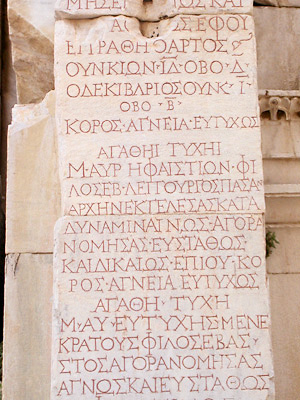 ΜΗΣΕ ΟΣ ΚΑΙ
ΕΦΟΥ
ΕΠΡΑΘΗ ΑΡΤΟΣ
ΟΥΝΚΙΩΝ·ΙΔ·ΟΒΟ·Δ
Ο ΔΕ ΚΙΒΑΡΙΟΣ ΟΥΝΚ·Ι
ΟΒΟ·Β·
ΚΟΡΟΣ·ΑΓΝΕΙΑ·ΕΥΤΥΧΩΣ
ΑΓΑΘΗΙ ΤΥΧΗΙ
Μ·ΑΥΡ·ΗΦΑΙΣΤΙΩΝ·ΦΙ
ΛΟΣΕΒ·ΛΕΙΤΟΥΡΓΙΟΣ ΠΑΣΑ
ΑΡΧΗΝ ΕΚΤΕΛΕΣΑΣ ΚΑΤΑ
ΔΥΝΑΜΙΝ ΑΓΝΩΣ·ΑΓΟΡΑ
ΝΟΜΗΣΑΣ·ΕΥΣΤΑΘΩΣ
ΚΑΙ ΔΙΚΑΙΩΣ·ΕΠΙ ΟΥ·ΚΟ
ΡΟΣ·ΑΓΝΕΙΑ·ΕΥΤΥΧΩΣ
ΑΓΑΘΗΙ·ΤΥΧΗ
Μ·ΑΥ·ΕΥΤΥΧΗΣ·ΜΕΝΕ
ΚΡΑΤΟΥΣ ΦΙΛΟΣΕΒΑΣ
ΣΤΟΣ ΑΓΟΡΑΝΟΜΗΣΑΣ
ΑΓΝΩΣ ΚΑΙ ΕΥΣΤΑΘΩΣ